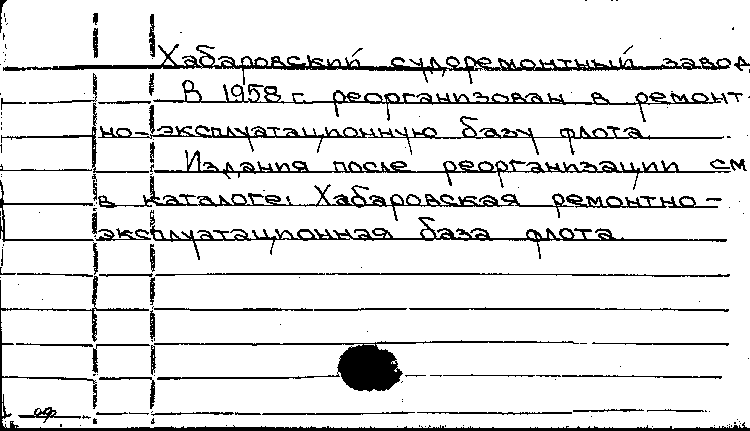 Хабаровский судоремонтный завод
В 1958 г. реорганизован в ремонт-
но-эксплуатационную базу флота.
Издания после реорганизации см
в каталоге: Хабаровская ремонтно-
эксплуатационная база флота.